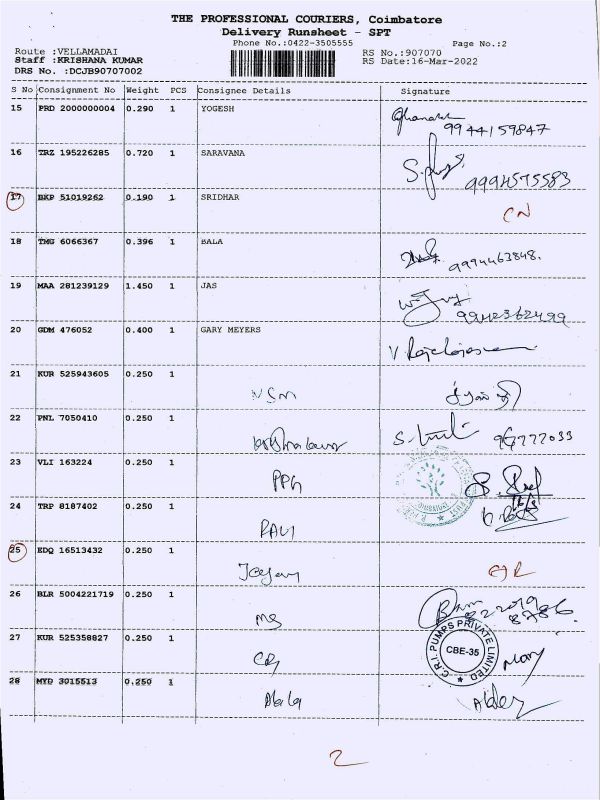 THE PROFESSIONAL COURIERS, Coimbatore
Delivery Runsheet - SPT
Phone No.:0422-3505555
Page No.:2
Route :VELLAMADAI
RS No.:907070
Staff :KRISHANA KUMAR
RS Date:16-Mar-2022
DRS No. :DCJB90707002
S No Consignment No Weight PCS Consignee Details Signature
15 PRD 2000000004 0.290 1 YOGESH
9944159847
16 TRZ 195226285 0.720 1 SARAVANA
9994575583
17 BKP 51019262 0.190 1 SRIDHAR
CN
18 TMG 6066367 0.396 1 BALA
9994463848.
19 MAA 281239129 1.450 1 JAS
9942362499
20 GDM 476052 0.400 1 GARY MEYERS
21 KUR 525943605 0.250 1
22 PNL 7050410 0.250 1
23 VLI 163224 0.250 1
PPG
24 TRP 8187402 0.250 1
RAVI
25 EDQ 16513432 0.250 1
26 BLR 5004221719 0.250 1
MS
27 KUR 525358827 0.250 1
C.R.I. PUMPS PRIVATE LIMITED
CBE-35
28 MYD 3015513 0.250 1
2